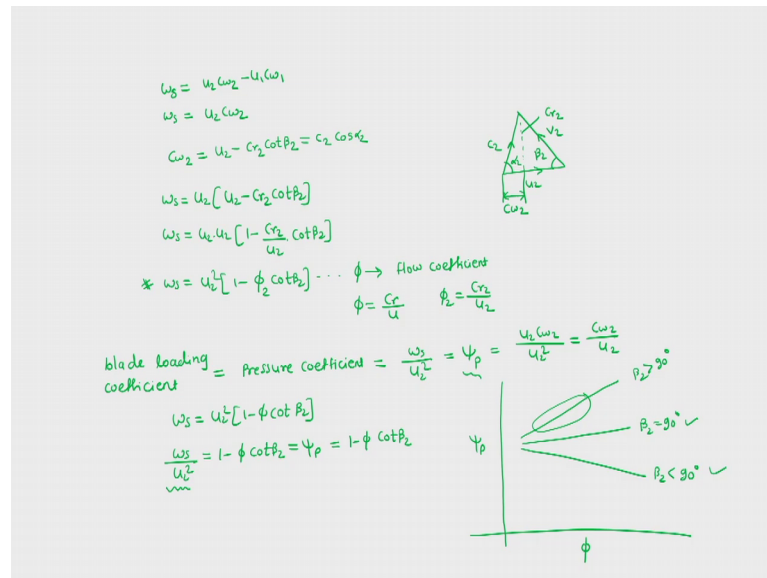 ws = u2 Cw2 - u1 Cw1
ws = u2 Cw2
Cw2 = u2 - Cr2 cot β2 = C2 cos α2
ws = u2 [u2 - Cr2 cot β2]
ws = u2.u2 [1 - Cr2/u2 . cot β2]
* ws = u2² [1 - ϕ2 cot β2] ... ϕ → flow coefficient
ϕ = Cr/u ϕ2 = Cr2/u2
Cr2
V2
C2
α2
β2
u2
Cw2
blade loading coefficient = Pressure coefficient = ws/u2² = ψp = u2 Cw2/u2² = Cw2/u2
ws = u2² [1 - ϕ cot β2]
ws/u2² = 1 - ϕ cot β2 = ψp = 1 - ϕ cot β2
β2 > 90°
ψp
β2 = 90° ✓
β2 < 90° ✓
ϕ